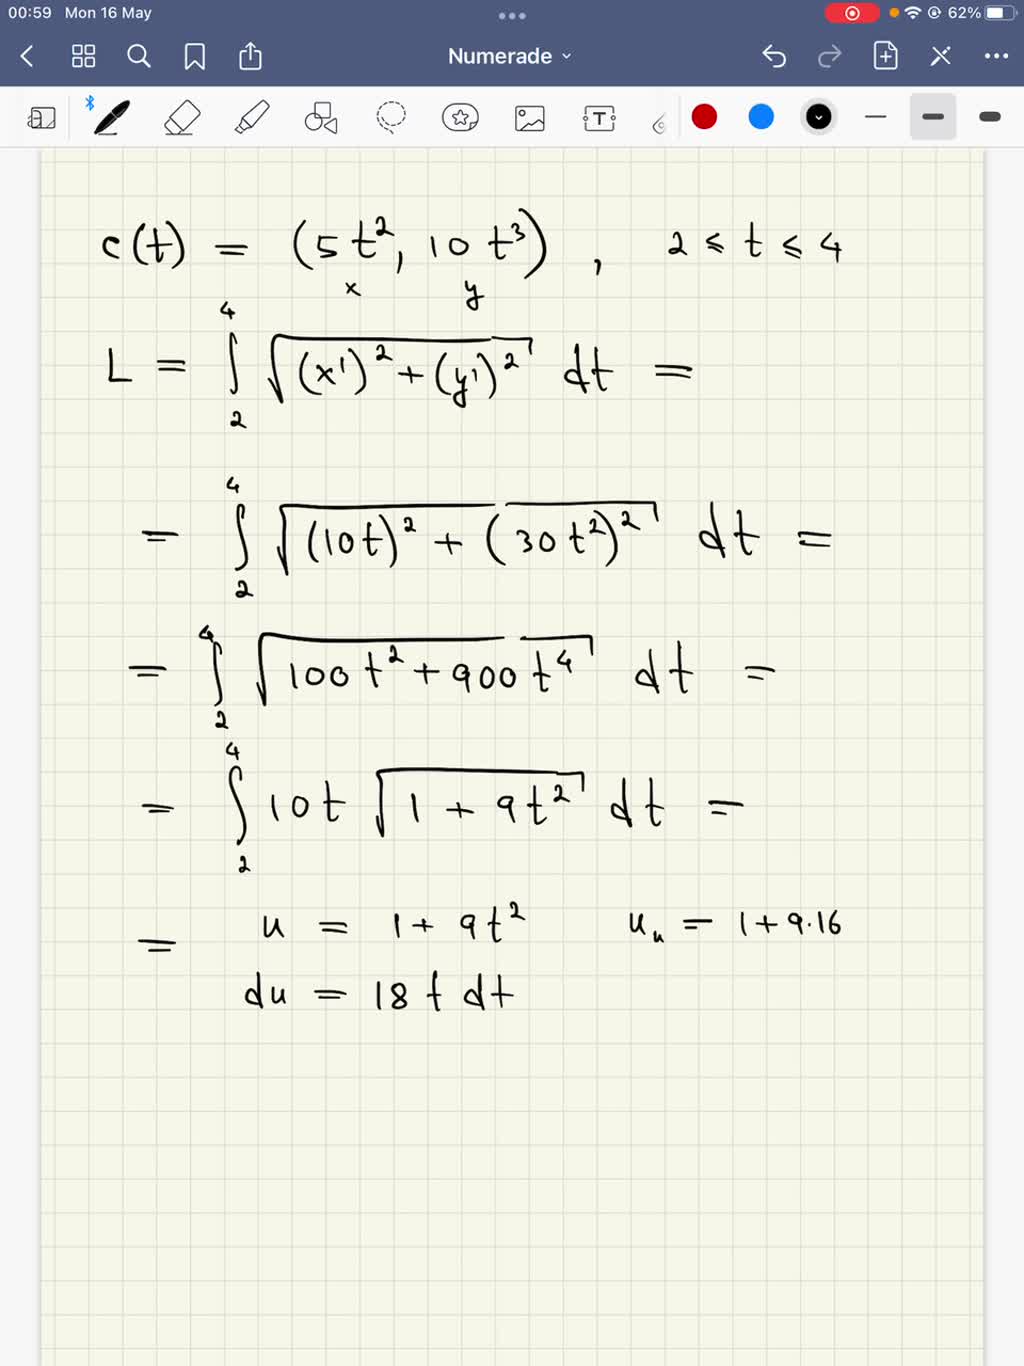 00:59 Mon 16 May 62%
Numerade
c(t) = (5t², 10t³), 2 ≤ t ≤ 4
x y
L = ∫₂⁴ √((x')² + (y')²) dt =
= ∫₂⁴ √((10t)² + (30t²)²) dt =
= ∫₂⁴ √(100t² + 900t⁴) dt =
= ∫₂⁴ 10t √(1 + 9t²) dt =
= u = 1 + 9t² uᵤ = 1 + 9·16
du = 18 t dt